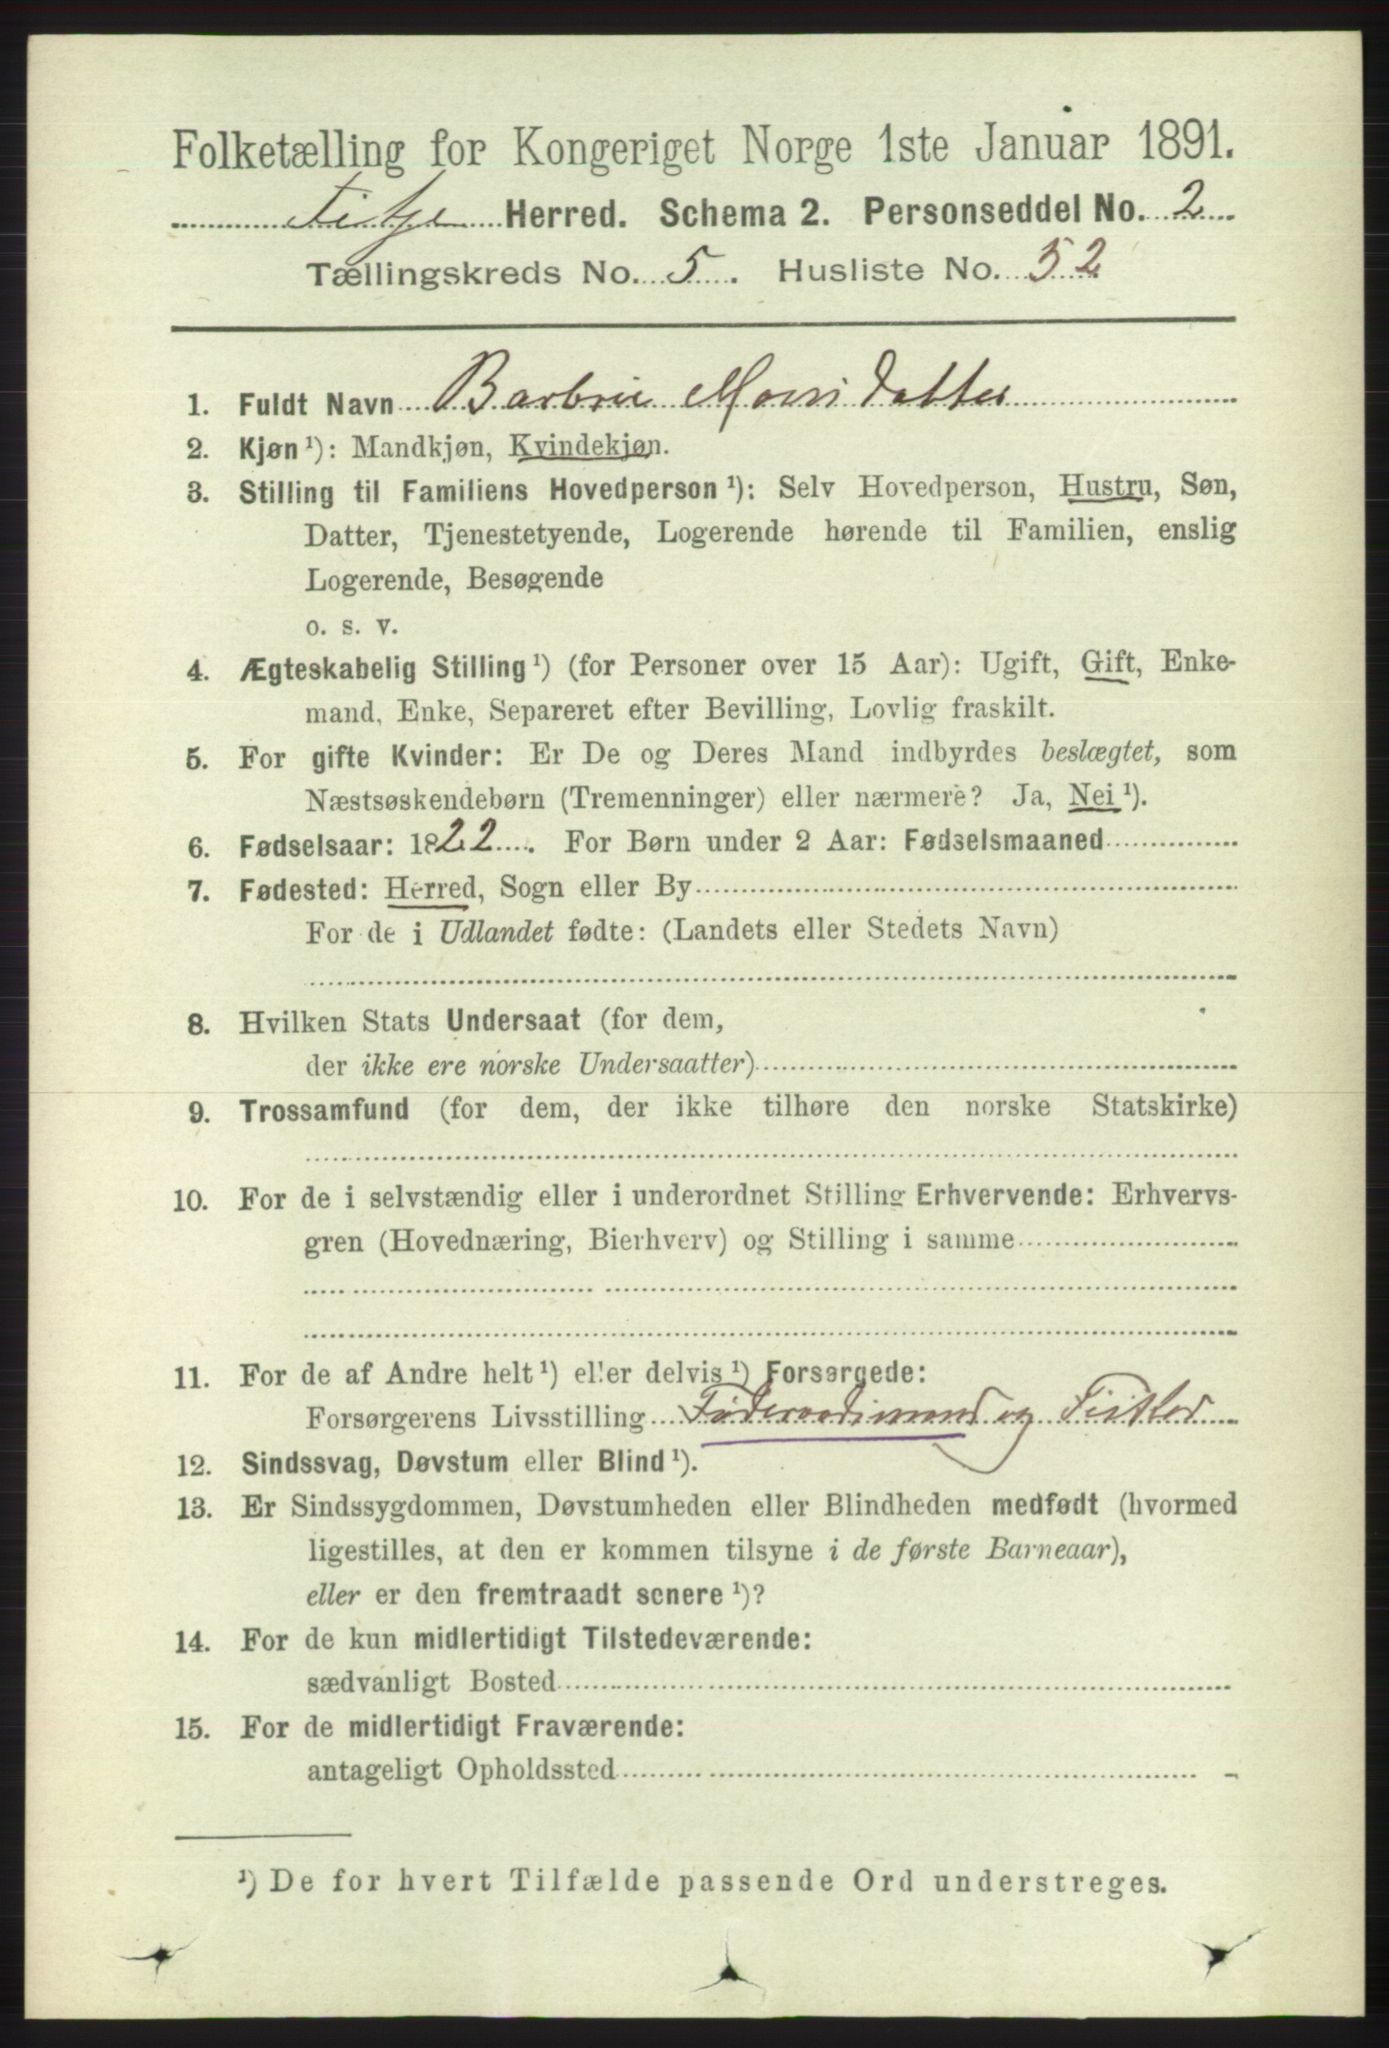 Folketælling for Kongeriget Norge 1ste Januar 1891.
Fitje Herred. Schema 2. Personseddel No. 2
Tællingskreds No. 5. Husliste No. 52
1. Fuldt Navn Barbrie Monsdatter
2. Kjøn ¹): Mandkjøn, Kvindekjøn.
3. Stilling til Familiens Hovedperson ¹): Selv Hovedperson, Hustru, Søn,
Datter, Tjenestetyende, Logerende hørende til Familien, enslig
Logerende, Besøgende
o. s. v.
4. Ægteskabelig Stilling ¹) (for Personer over 15 Aar): Ugift, Gift, Enke-
mand, Enke, Separeret efter Bevilling, Lovlig fraskilt.
5. For gifte Kvinder: Er De og Deres Mand indbyrdes beslægtet, som
Næstsøskendebørn (Tremenninger) eller nærmere? Ja, Nei ¹).
6. Fødselsaar: 1822. For Børn under 2 Aar: Fødselsmaaned
7. Fødested: Herred, Sogn eller By
For de i Udlandet fødte: (Landets eller Stedets Navn)
8. Hvilken Stats Undersaat (for dem,
der ikke ere norske Undersaatter)
9. Trossamfund (for dem, der ikke tilhøre den norske Statskirke)
10. For de i selvstændig eller i underordnet Stilling Erhvervende: Erhvervs-
gren (Hovednæring, Bierhverv) og Stilling i samme
11. For de af Andre helt ¹) eller delvis ¹) Forsørgede:
Forsørgerens Livsstilling Føderaadsmand og Fisker
12. Sindssvag, Døvstum eller Blind ¹).
13. Er Sindssygdommen, Døvstumheden eller Blindheden medfødt (hvormed
ligestilles, at den er kommen tilsyne i de første Barneaar),
eller er den fremtraadt senere ¹)?
14. For de kun midlertidigt Tilstedeværende:
sædvanligt Bosted
15. For de midlertidigt Fraværende:
antageligt Opholdssted
¹) De for hvert Tilfælde passende Ord understreges.